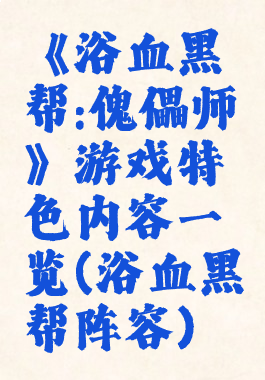 《浴血黑
帮:傀儡师
》游戏特
色内容一
览(浴血黑
帮阵容)